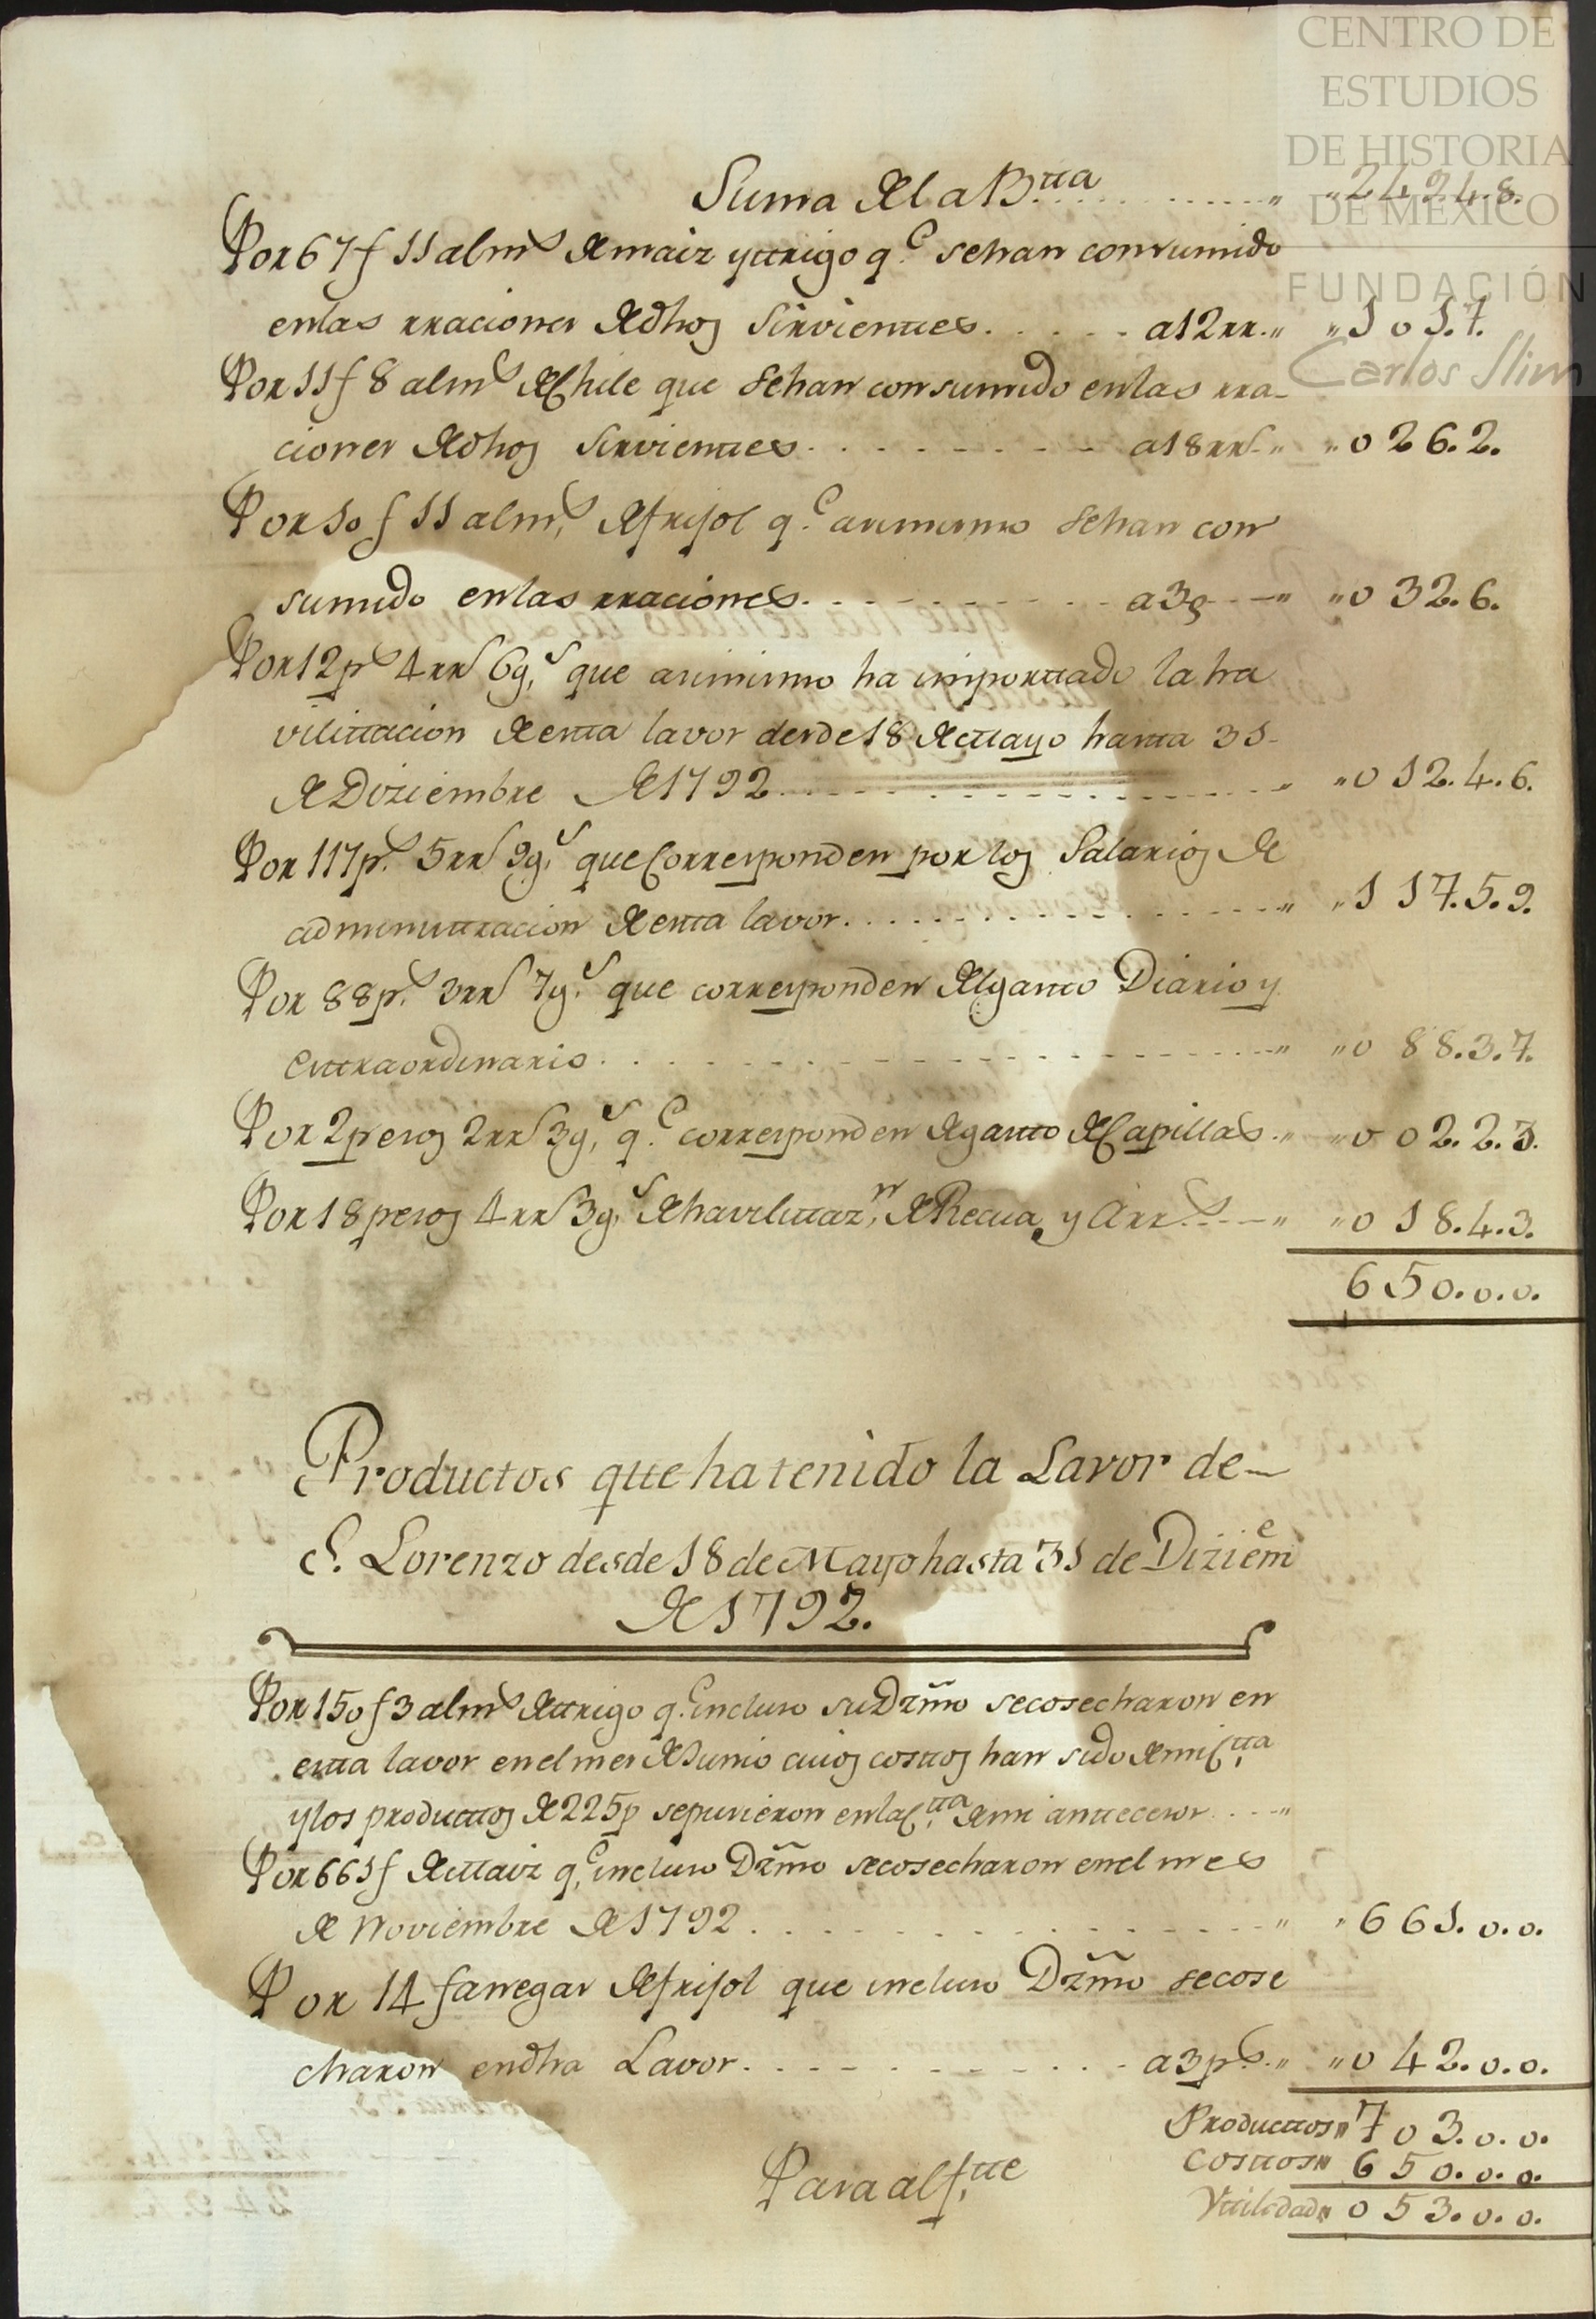 CENTRO DE
ESTUDIOS
DE HISTORIA
DE MÉXICO
FUNDACIÓN
Carlos Slim
Suma de la B.tta " "2494.8.
Por 67f 11 alms de maiz y ttrigo q.e se han consumido
en las rraciones de dhos Sirvienttes a12rr." "101.7.
Por 11f 8 alms de Chile que se han consumido en las rra-
ciones de dhos Sirvienttes a18rrs " "026.2.
Por 10f 11 alms, de frijol q.e asimismo se han con
sumido en las rraciones a3p " "032.6.
Por 12ps 4rrs 6g,s que asimismo ha importtado la ha
vilittacion de estta lavor desde 18 de Mayo hastta 31
de Diziembre de 1792 " "012.4.6.
Por 117p.s 5rrs 9g,s que Corresponden por los Salarios de
administtracion de estta lavor " "117.5.9.
Por 88p.s 3rrs 7g.s que corresponden del gastto Diario y
exttraordinario " "088.3.7.
Por 2 pesos 2rrs 3g,s q.e corresponden de gastto de Capillas " "002.2.3.
Por 18 pesos 4rrs 3g,s de havilittaz,n de Recua y Arrs " "018.4.3.
650.0.0.
Productos que ha tenido la Lavor de
S. Lorenzo desde 18 de Mayo hasta 31 de Diziem e
de 1792.
Por 150f 3 alms de ttrigo q.e incluso su Dzmo se cosecharon en
estta lavor en el mes de Junio cuios costtos han sido de mi C,tta
y los producttos de 225p se pusieron en la C,tta de mi anttecesor "
Por 661f de Maiz q,e incluso Dzmo se cosecharon en el mes
de Noviembre de 1792 " "661.0.0.
Por 14 fanegas de frijol que incluso Dzmo se cose
charon en dha Lavor a3ps " "042.0.0.
Producttos " 703.0.0.
Costtos " 650.0.0.
Vttilidad " 053.0.0.
Para al f,tte